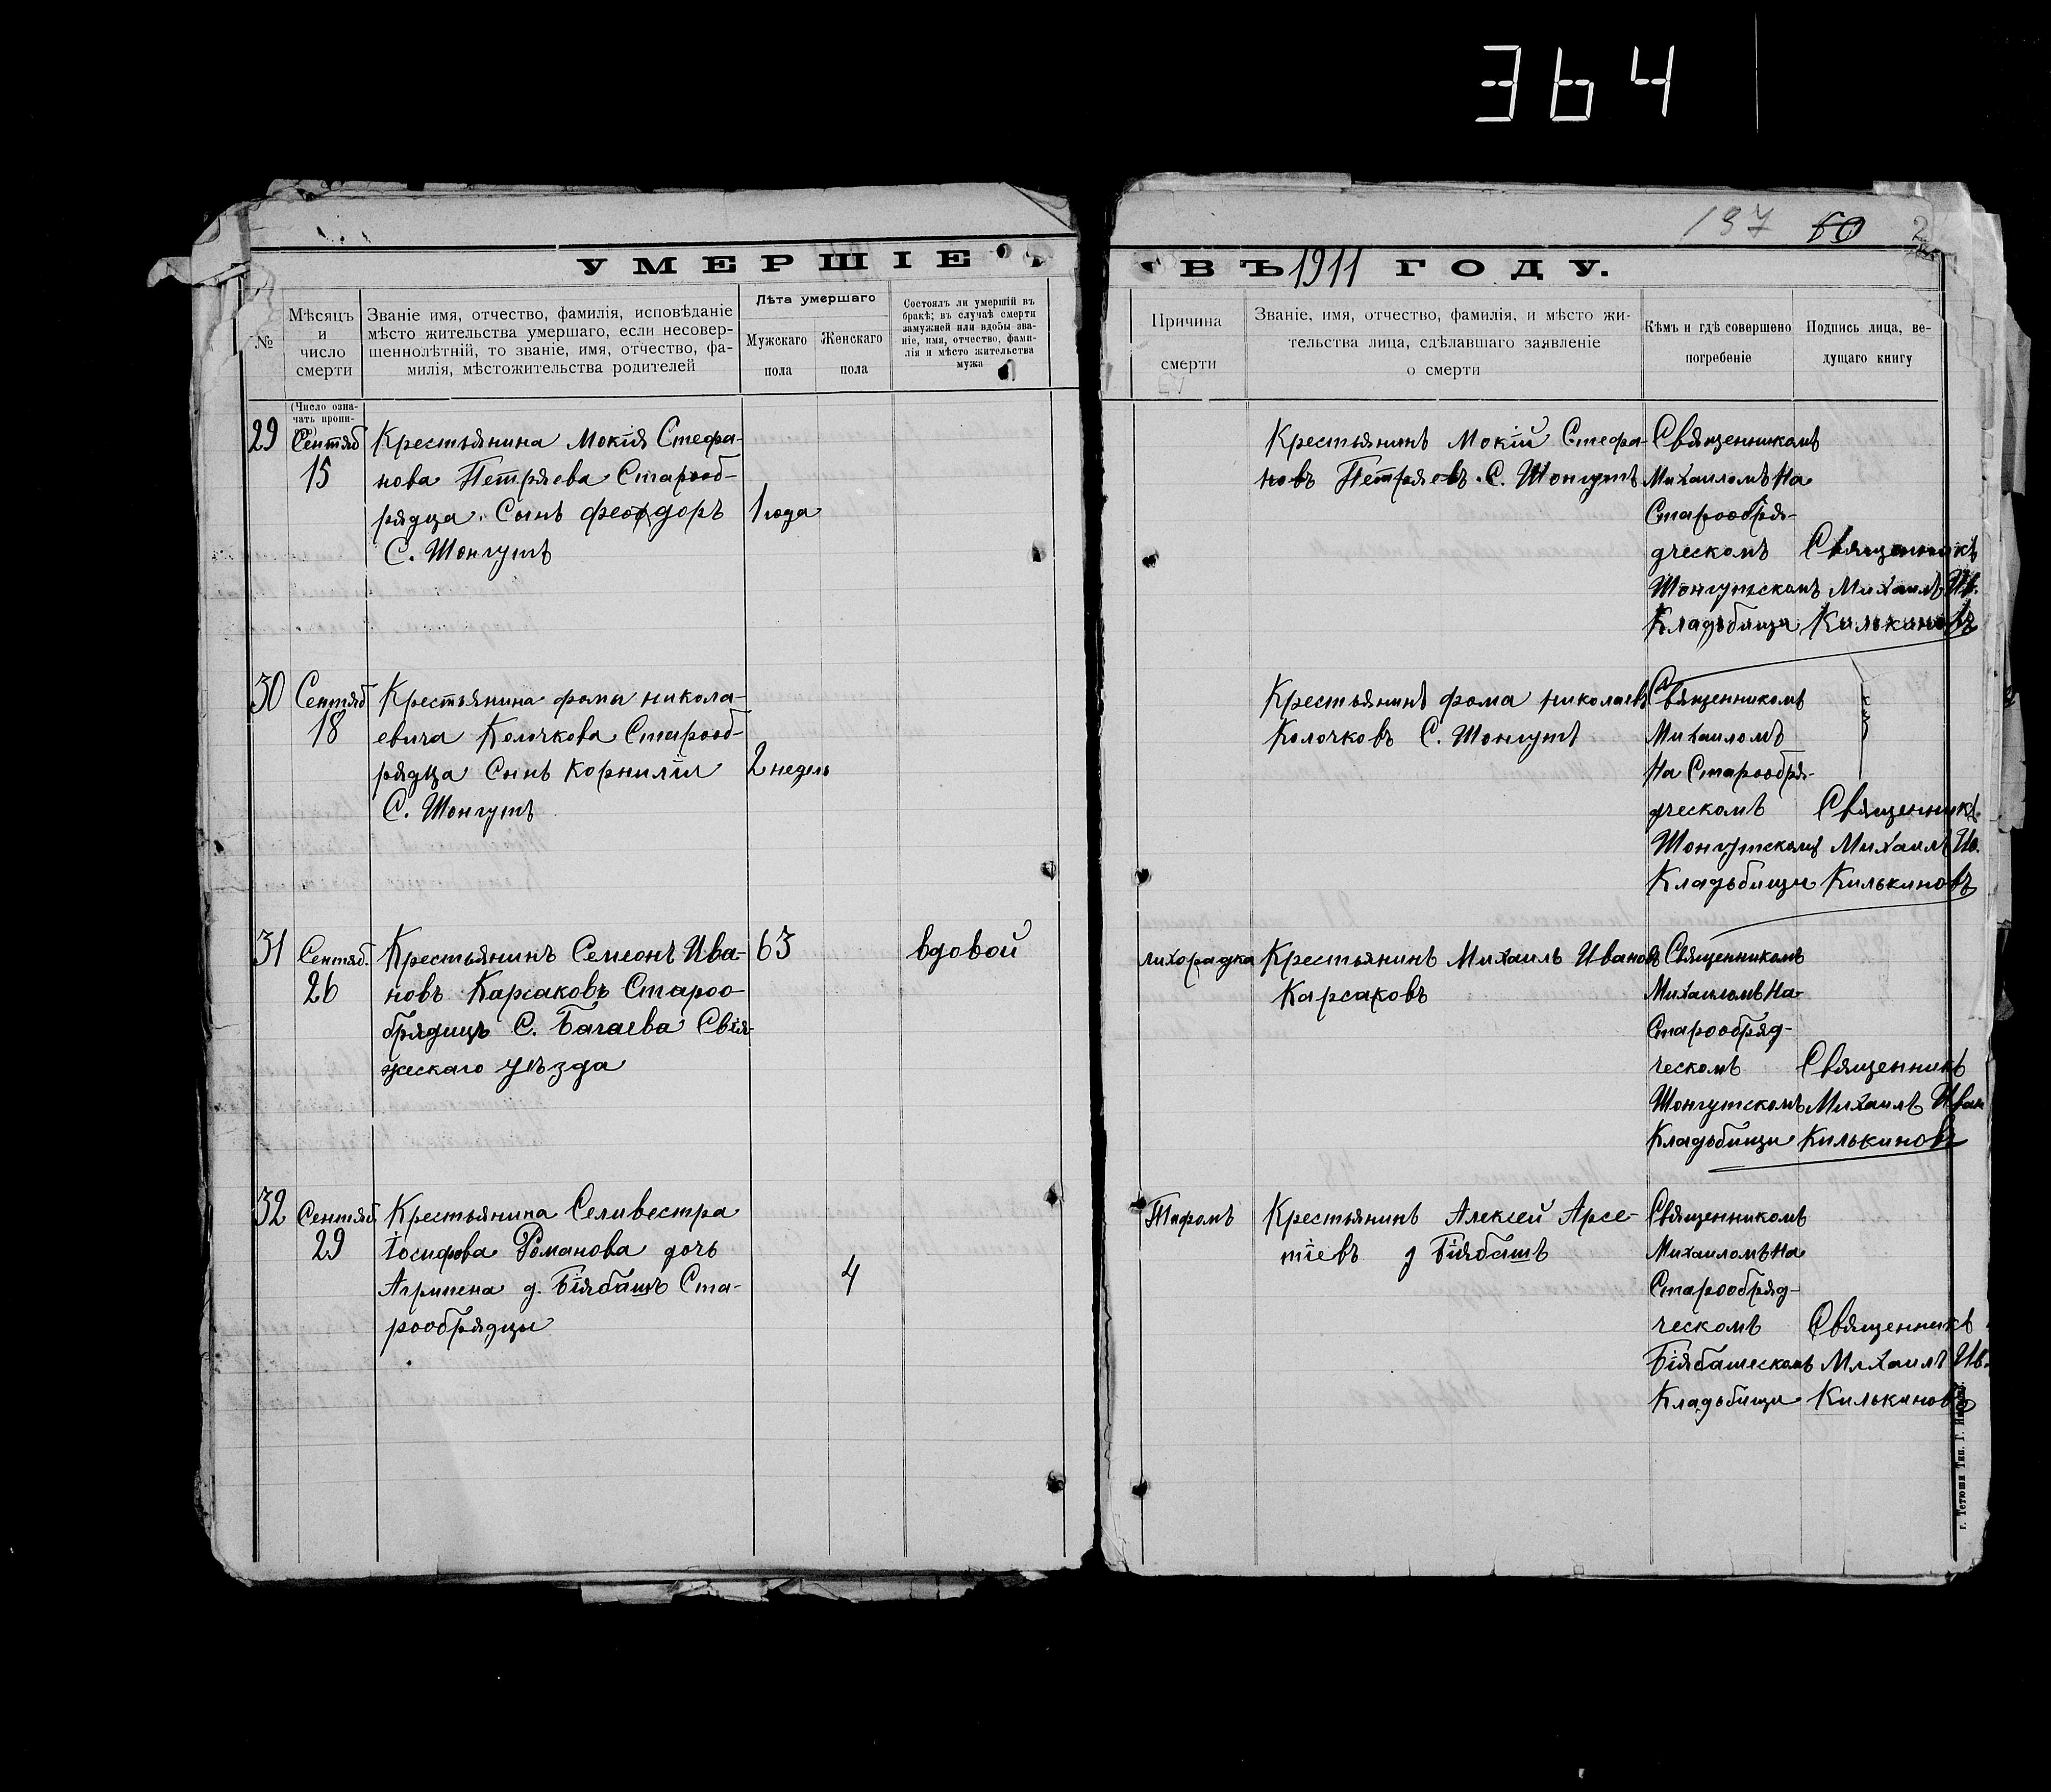 364
137 60 2
УМЕРШІЕ
ВЪ 1911 ГОДУ.
№
Мѣсяцъ
и
число
смерти
Званіе имя, отчество, фамилія, исповѣданіе
мѣсто жительства умершаго, если несовер-
шеннолѣтній, то званіе, имя, отчество, фа-
милія, мѣстожительства родителей
Лѣта умершаго
Мужскаго
пола
Женскаго
пола
Состоялъ ли умершій въ
бракѣ; въ случаѣ смерти
замужней или вдовы зва-
ніе, имя, отчество, фами-
лія и мѣсто жительства
мужа
Причина
смерти
Званіе, имя, отчество, фамилія, и мѣсто жи-
тельства лица, сдѣлавшаго заявленіе
о смерти
Кѣмъ и гдѣ совершено
погребеніе
Подпись лица, ве-
дущаго книгу
(Число озна-
чать пропи-
сью)
29
Сентяб
15
Крестьянина Мокія Стефа-
нова Петряева Старооб-
рядца. Сынъ феодоръ
С. Шонгутъ
1 года
Крестьянинъ Мокій Стефа-
новъ Петряевъ. С. Шонгутъ
Священникомъ
Михаиломъ На
Старообря-
дческомъ
Шонгутскомъ
Кладьбищи
Священникъ
Михаилъ Ив.
Килькиновъ
30
Сентяб
18
Крестьянина фомы никола-
евича Колочкова Старооб-
рядца Сынъ Корнилій
С. Шонгутъ
2 недель
Крестьянинъ фома николаевъ
Колочковъ С. Шонгутъ
Священникомъ
Михаиломъ
На Старообря-
дческомъ
Шонгутскомъ
Кладьбищи
Священникъ
Михаилъ Ив.
Килькиновъ
31
Сентяб.
26
Крестьянинъ Семеонъ Ива-
новъ Карсаковъ Староо-
брядицъ С. Багаева Свія-
жескаго уѣзда
63
вдовой
лихорадка
Крестьянинъ Михаилъ Ивановъ
Карсаковъ
Священникомъ
Михаиломъ На
Старообряд-
ческомъ
Шонгутскомъ
Кладьбищи
Священникъ
Михаилъ Иван
Килькиновъ
32
Сентяб
29
Крестьянина Селивестра
Іосифова Романова дочь
Агрипена д. Біябашъ Ста-
рообрядцы
4
Тифомъ
Крестьянинъ Алексей Арсе-
тіевъ д Біябашъ
Священникомъ
Михаиломъ На
Старообряд-
ческомъ
Біябашескомъ
Кладьбищи
Священникъ
Михаилъ Ив.
Килькиновъ